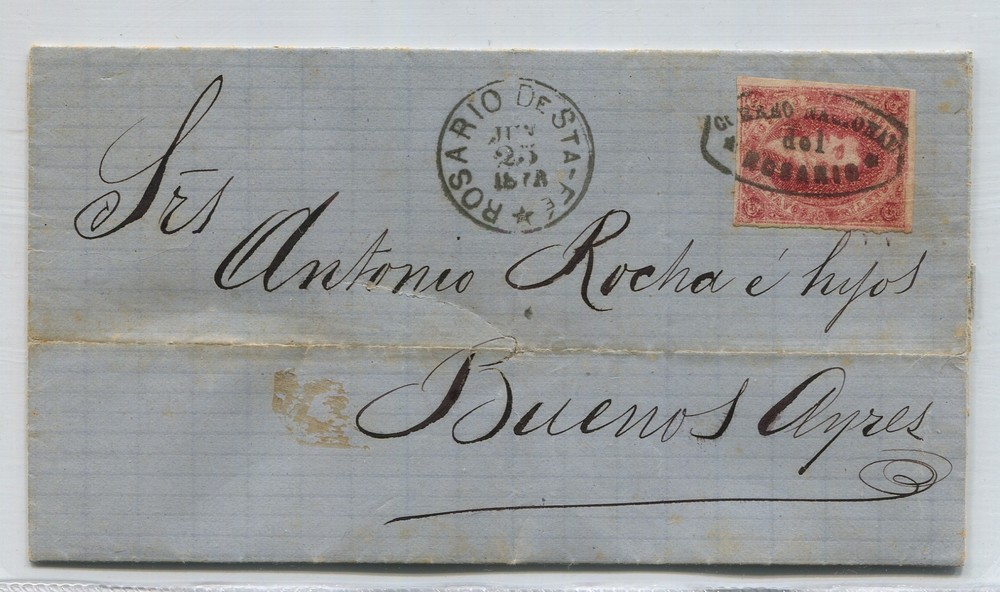 ROSARIO DE STA-FÉ
JUN
25
CORREO NACIONAL
del
ROSARIO
Srs
Antonio Rocha é hijos
Buenos Ayres